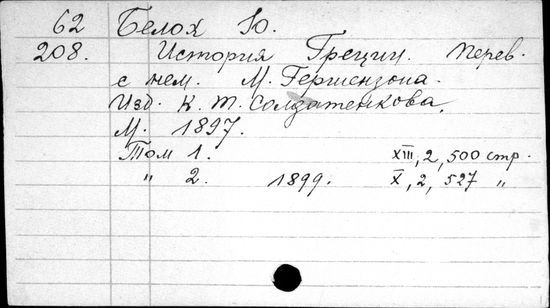 62 Белох Ю.
208. История Греции. Перев.
с нем. М. Гершензона.
Изд. К. Т. Солдатенкова.
М. 1897.
Том 1. XIII, 2, 500 стр.
" 2. 1899. X, 2, 527 "